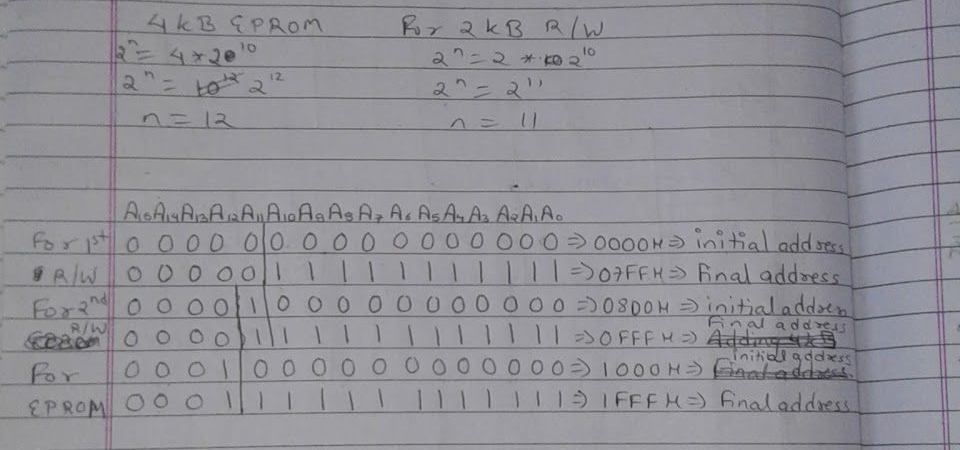 4kB EPROM For 2kB R/W
2ⁿ = 4*2¹⁰ 2ⁿ = 2 * 2¹⁰
2ⁿ = 2¹² 2ⁿ = 2¹¹
n = 12 n = 11
A₁₅A₁₄A₁₃A₁₂A₁₁A₁₀A₉A₈A₇ A₆A₅A₄A₃ A₂A₁A₀
For 1st 0 0 0 0 0 0 0 0 0 0 0 0 0 0 0 0 => 0000H => initial address
R/W 0 0 0 0 0 1 1 1 1 1 1 1 1 1 1 1 => 07FFH => Final address
For 2nd 0 0 0 0 1 0 0 0 0 0 0 0 0 0 0 0 => 0800H => initial address
R/W 0 0 0 0 1 1 1 1 1 1 1 1 1 1 1 1 => 0FFFH => Final address
For 0 0 0 1 0 0 0 0 0 0 0 0 0 0 0 0 => 1000H => initial address
EPROM 0 0 0 1 1 1 1 1 1 1 1 1 1 1 1 1 => 1FFFH => Final address